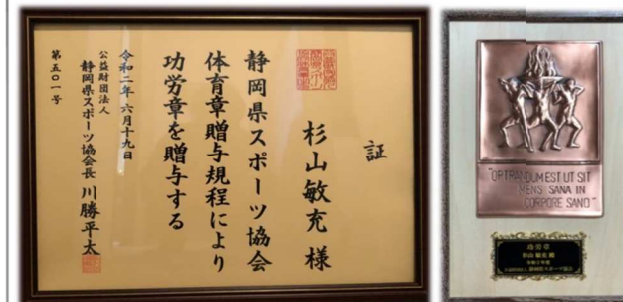 証
杉山敏充様
静岡県スポーツ協会
体育章贈与規程により
功労章を贈与する
令和二年六月十九日
公益財団法人
静岡県スポーツ協会長 川勝平太
第五〇一号
"OPTRANDUM EST UT SIT
MENS SANA IN
CORPORE SANO"
功労章
杉山敏充殿
令和2年度